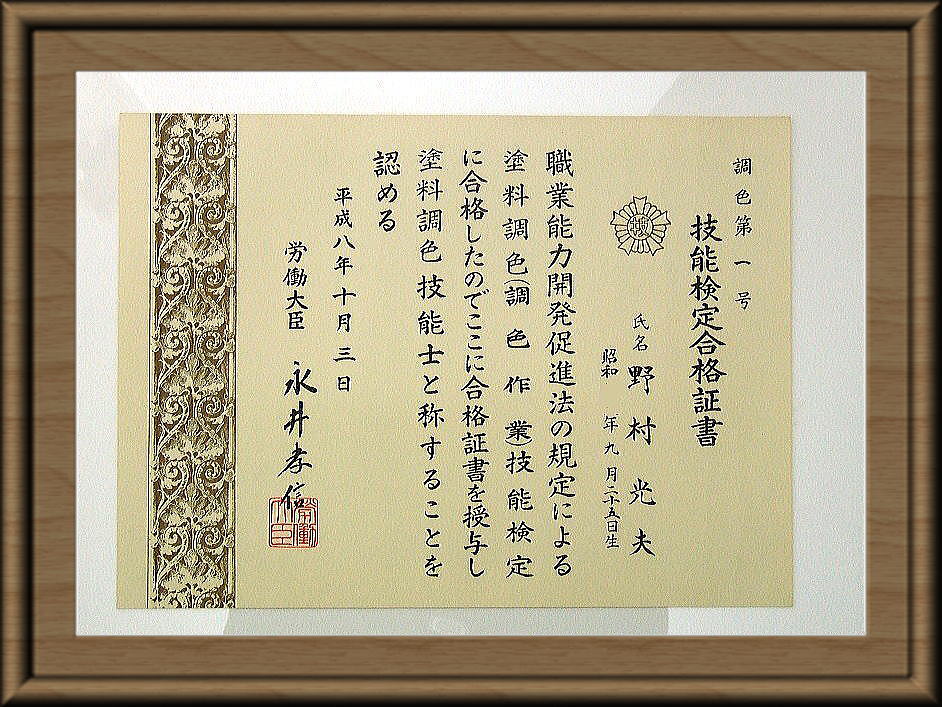 調色第一号
技能検定合格証書
氏名 野村光夫
昭和 年九月二十五日生
職業能力開発促進法の規定による
塗料調色(調色作業)技能検定
に合格したのでここに合格証書を授与し
塗料調色技能士と称することを
認める
平成八年十月三日
労働大臣 永井孝信
労働大臣